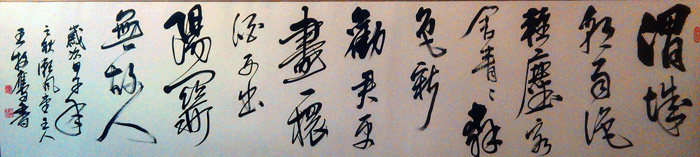 渭城
朝雨浥
輕塵客
舍青々柳
色新
勸君更
盡一杯
酒西出
陽關
無故人
歲次甲午年
秋風堂主人
王牧鷹書